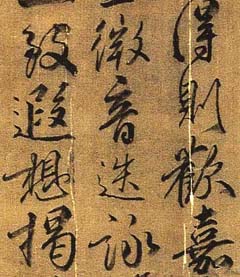 得則歡嘉
微音迭詠
致遐想揭